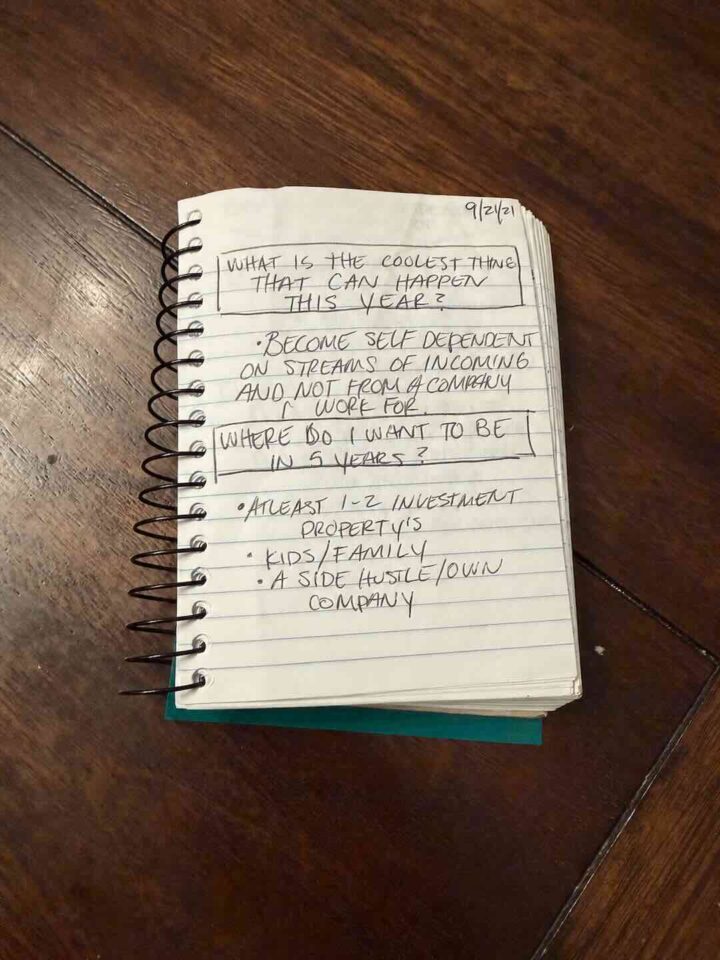 9/21/21
WHAT IS THE COOLEST THING
THAT CAN HAPPEN
THIS YEAR?
• BECOME SELF DEPENDENT
ON STREAMS OF INCOMING
AND NOT FROM A COMPANY
I WORK FOR.
WHERE DO I WANT TO BE
IN 5 YEARS?
• ATLEAST 1-2 INVESTMENT
PROPERTY'S
• KIDS/FAMILY
• A SIDE HUSTLE/OWN
COMPANY